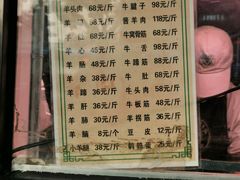 羊头肉 68元/斤 牛腱子 98元/斤
羊 68元/斤 酱羊肉 118元/斤
羊肚 68元/斤 牛窝骨筋 68元/斤
羊心 48元/斤 牛舌 98元/斤
羊肠 45元/斤 牛蹄筋 68元/斤
羊杂 38元/斤 牛肚 68元/斤
羊蹄 38元/斤 牛头肉 58元/斤
羊肝 36元/斤 牛板筋 48元/斤
羊肺 36元/斤 羊拐筋 36元/斤
羊脑 8元/个 豆皮 12元/斤
小羊腿 38元/斤 鹌鹑蛋 25元/斤